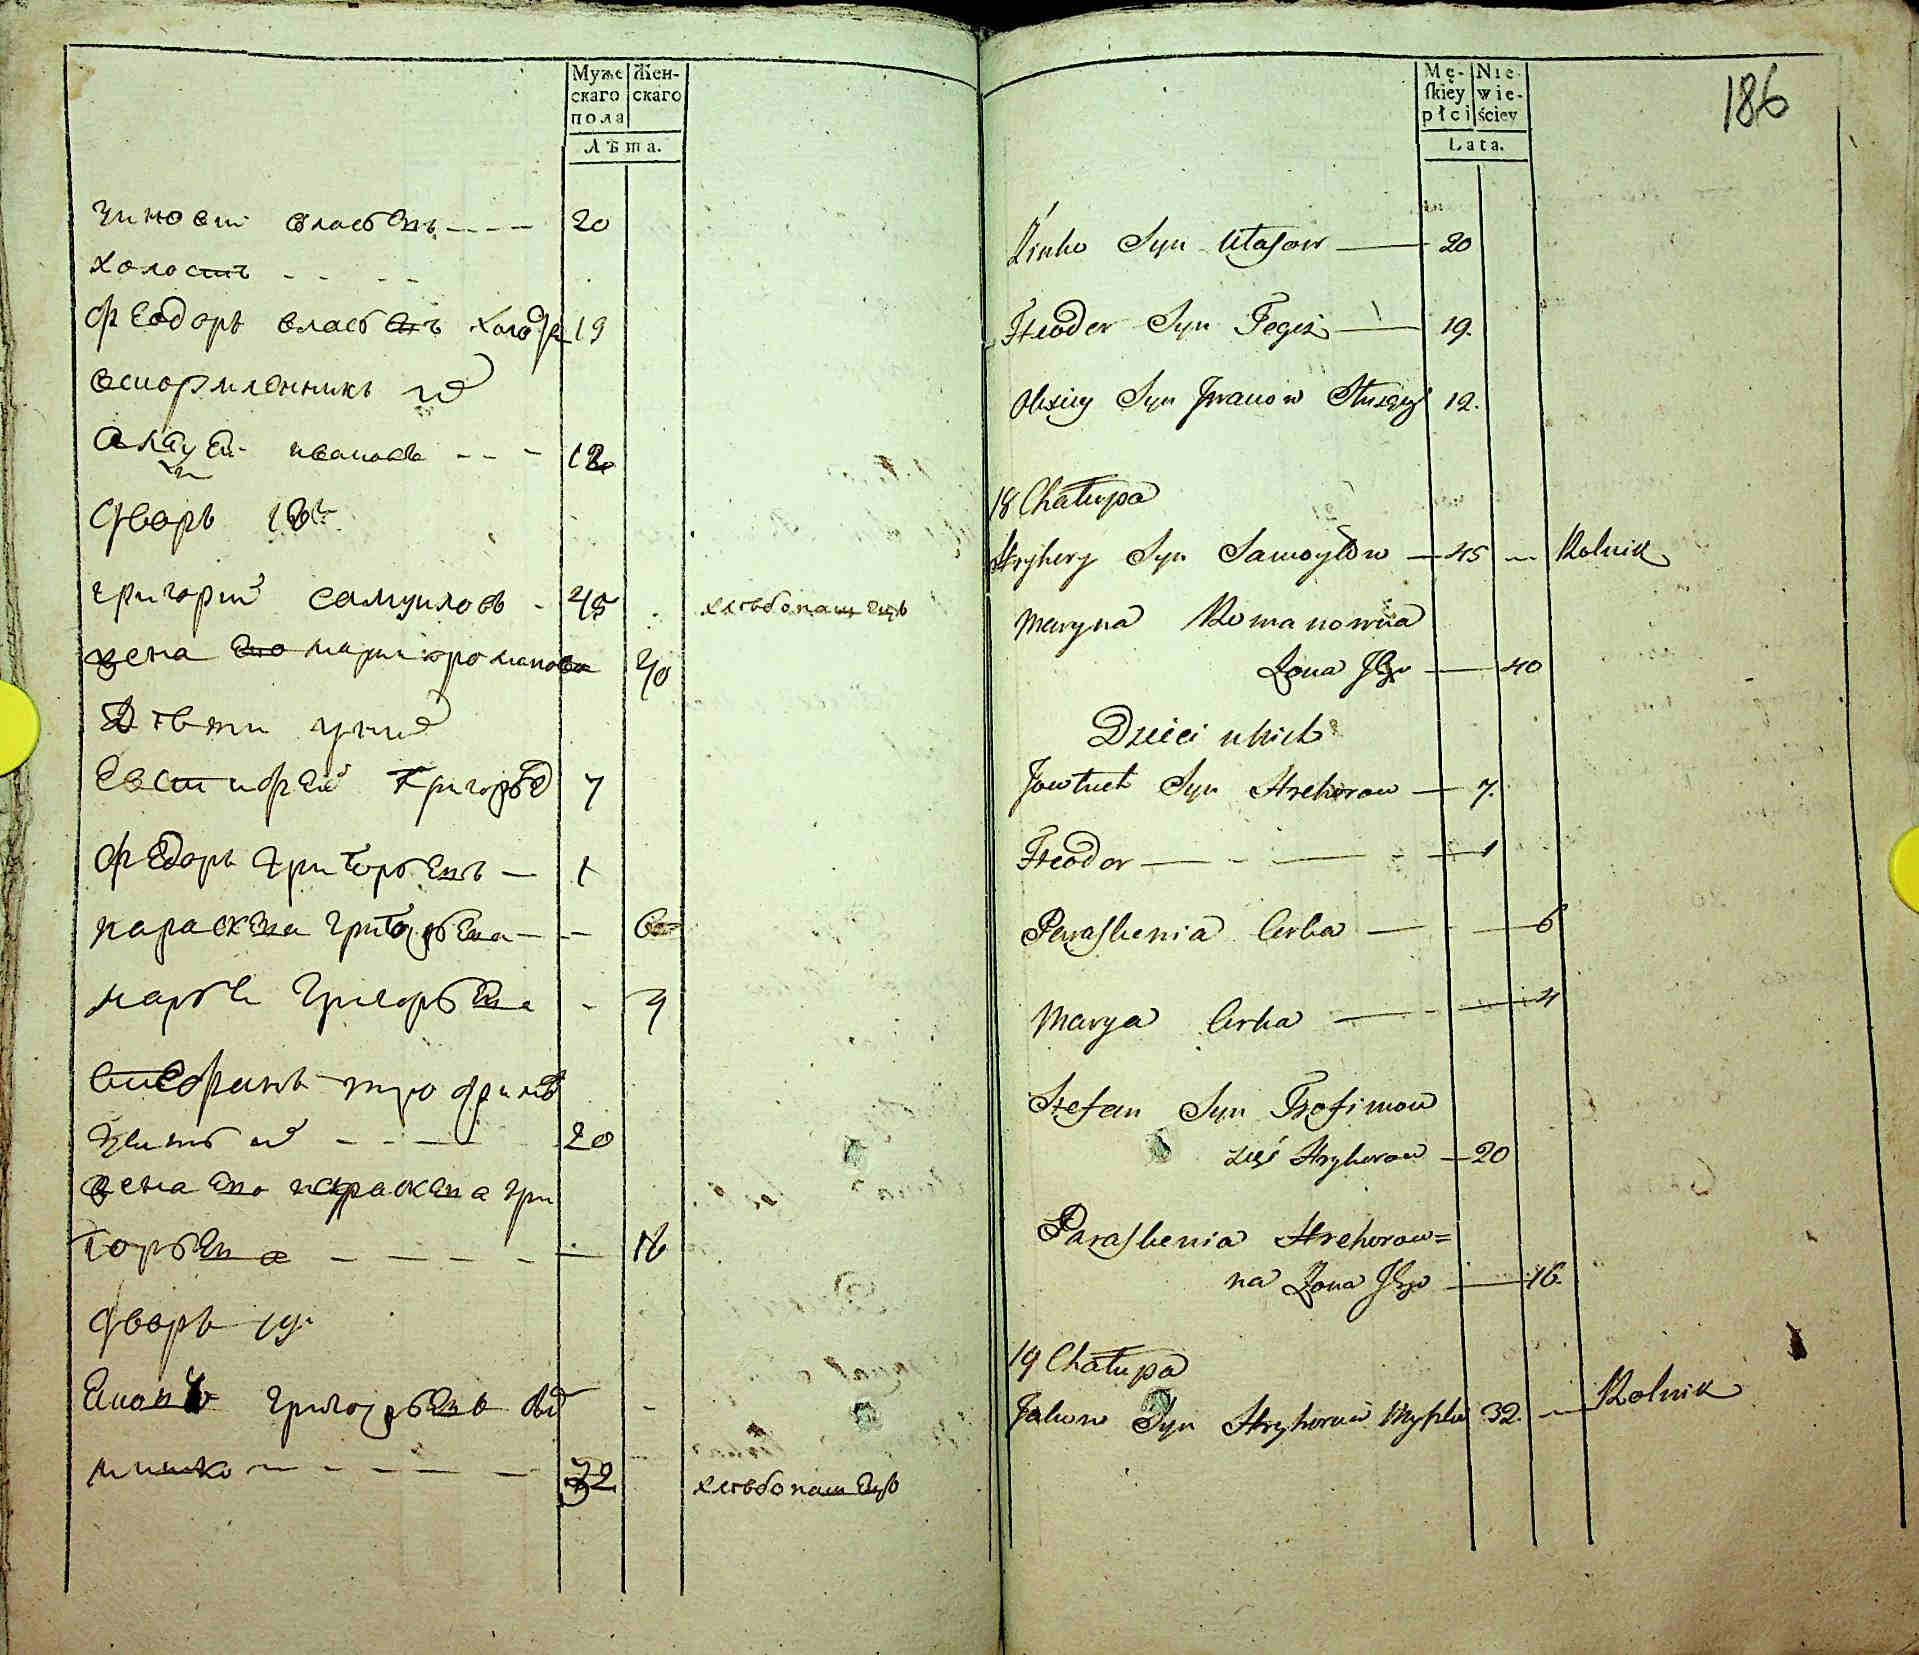 Муже Жен-
скаго скаго
пола
Лѣта.
власьевъ 20
холостъ
Феодоръ власьевъ 19
вскормленникъ
Алексѣй ивановъ 12
Дворъ 18
григорий самуиловъ 45 хлѣбопашецъ
жена его марья романова 40
Дѣти у них
Евстифей Григорьев 7
Федоръ григорьевъ 1
параскева григорьева 6
марья григорьева 4
трофимов
зять их 20
жена его параскева гри
горьева 16
Дворъ 19
григорьевъ
мишко 32 хлѣбопашецъ
186
Mę- Nie
ſkiey wie-
płci ściey
Lata.
Syn Ułasow 20
Fteodor Syn Tegoż 19.
Olexiey Syn Jwanow 12.
18 Chałupa
Hryhory Syn Samoyłow 45 Rolnik
Maryna Romanowna
Żona Jego 40
Dzieci u kich
Jowtuch Syn Hrehorow 7.
Fteodor 1
Paraſkenia Corka 6
Marya Corka 4
Stefan Syn Trofimow
zięć Hryhorow 20
Paraſkenia Hrehorow=
na Żona Jego 16.
19 Chałupa
Jakow Syn Hryhorow Myſzko 32. Rolnik